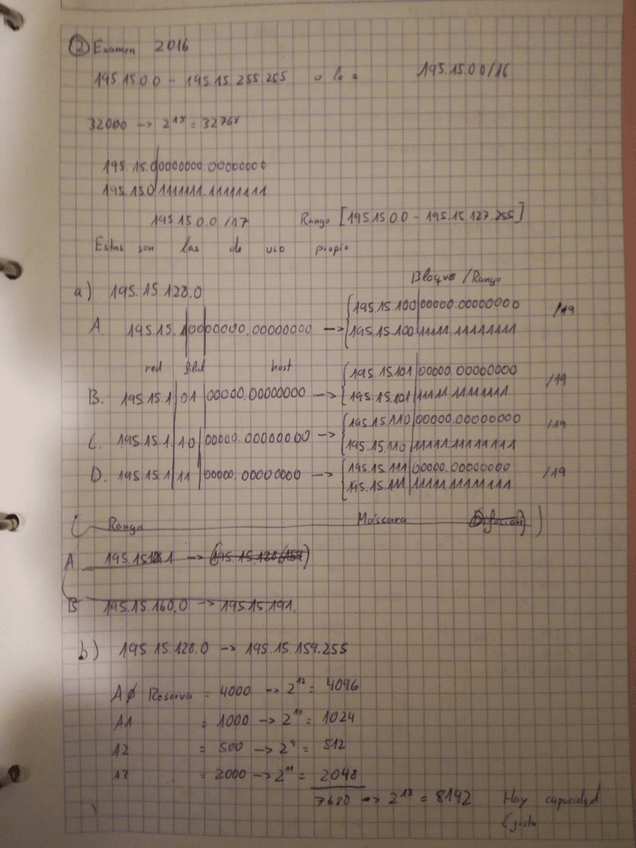 ② Examen 2016
195.15.0.0 - 195.15.255.255 o lo 195.15.0.0/16
32000 -> 2^15 = 32768
195.15.0|0000000.00000000
195.15.0|1111111.11111111
195.15.0.0/17 Rango [195.15.0.0 - 195.15.127.255]
Estas son las de uso propio
Bloque / Rango
a) 195.15.128.0
A. 195.15.1|00|00000.00000000 -> { 195.15.100|00000.00000000 /19
195.15.100|11111.11111111
red host
B. 195.15.1|01|00000.00000000 -> { 195.15.101|00000.00000000 /19
195.15.101|11111.11111111
C. 195.15.1|10|00000.00000000 -> { 195.15.110|00000.00000000 /19
195.15.110|11111.11111111
D. 195.15.1|11|00000.00000000 -> { 195.15.111|00000.00000000 /19
195.15.111|11111.11111111
( Rango Máscara Difusión )
A 195.15.128.1 -> (195.15.128/159)
B 195.15.160.0 -> 195.15.191.
b) 195.15.128.0 -> 195.15.159.255
Reserva = 4000 -> 2^12 = 4096
A1 = 1000 -> 2^10 = 1024
A2 = 500 -> 2^9 = 512
A3 = 2000 -> 2^11 = 2048
7680 -> 2^13 = 8192 Hay capacidad